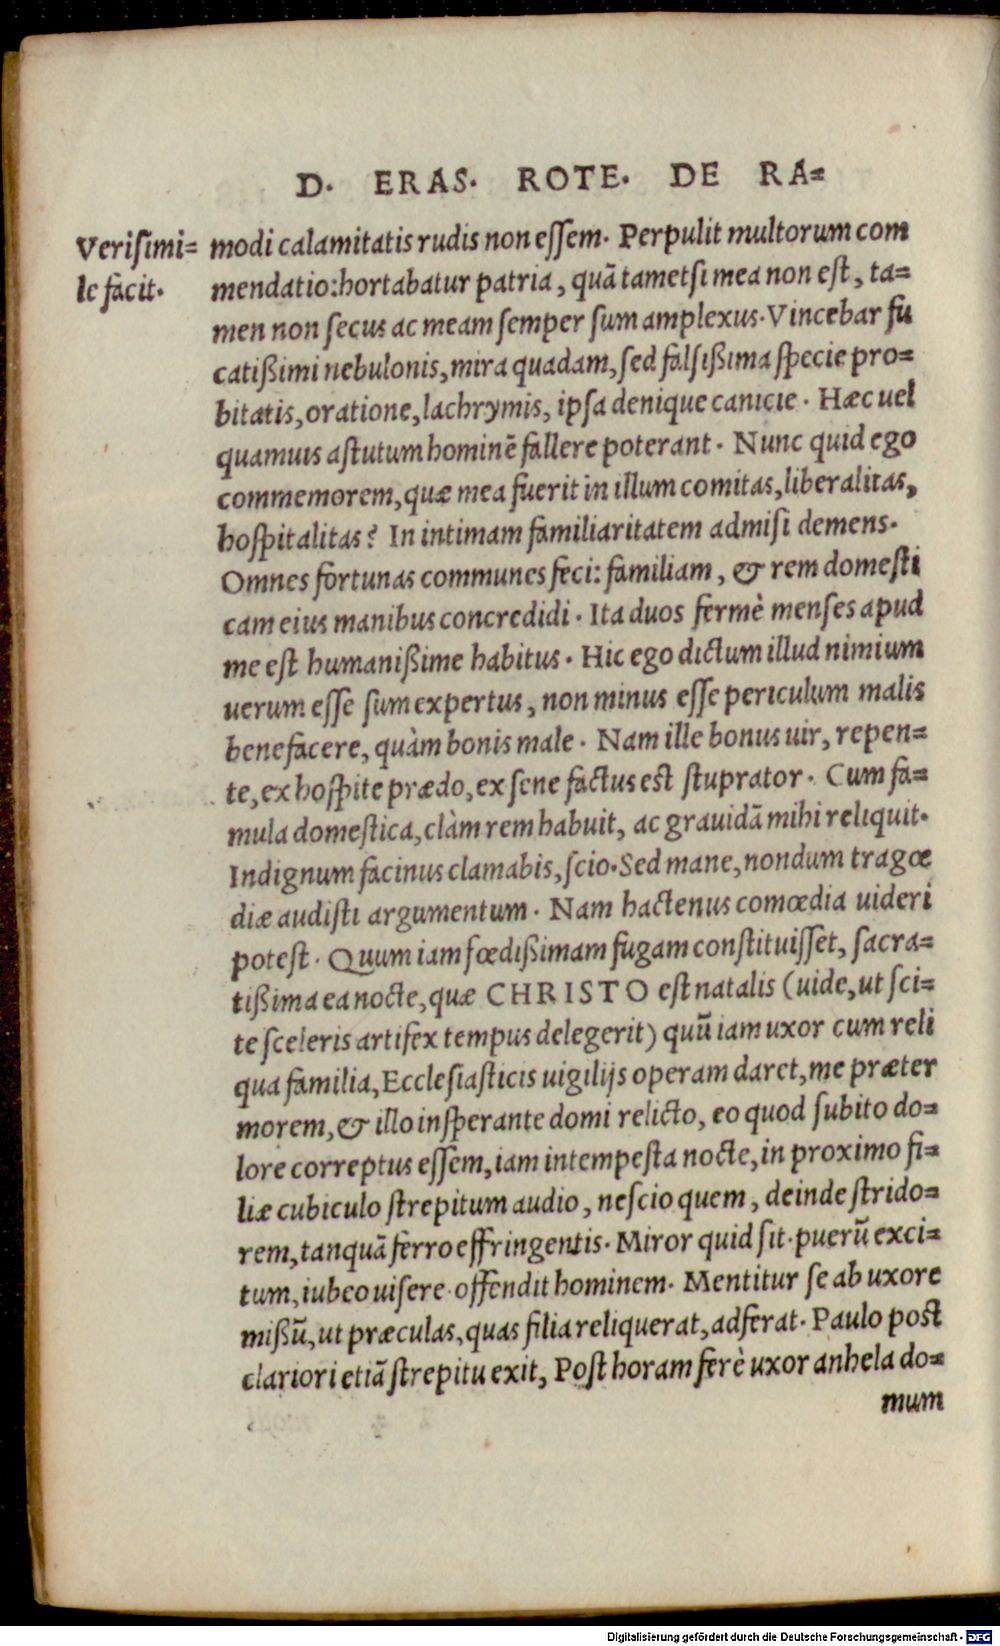 D. ERAS. ROTE. DE RA=
Verisimi=
le facit.
modi calamitatis rudis non essem. Perpulit multorum com
mendatio: hortabatur patria, quā tametsi mea non est, ta=
men non secus ac meam semper sum amplexus. Vincebar fu
catißimi nebulonis, mira quadam, sed falsißima specie pro=
bitatis, oratione, lachrymis, ipsa denique canicie. Hæc uel
quamuis astutum hominē fallere poterant. Nunc quid ego
commemorem, quæ mea fuerit in illum comitas, liberalitas,
hospitalitas? In intimam familiaritatem admisi demens.
Omnes fortunas communes feci: familiam, & rem domesti
cam eius manibus concredidi. Ita duos fermè menses apud
me est humanißime habitus. Hic ego dictum illud nimium
uerum esse sum expertus, non minus esse periculum malis
benefacere, quàm bonis male. Nam ille bonus uir, repen=
te, ex hospite prædo, ex sene factus est stuprator. Cum fa=
mula domestica, clàm rem habuit, ac grauidā mihi reliquit.
Indignum facinus clamabis, scio. Sed mane, nondum tragœ
diæ audisti argumentum. Nam hactenus comœdia uideri
potest. Quum iam fœdißimam fugam constituisset, sacra=
tißima ea nocte, quæ CHRISTO est natalis (uide, ut sci=
te sceleris artifex tempus delegerit) quū iam uxor cum reli
qua familia, Ecclesiasticis uigilijs operam daret, me præter
morem, & illo insperante domi relicto, eo quod subito do=
lore correptus essem, iam intempesta nocte, in proximo fi=
liæ cubiculo strepitum audio, nescio quem, deinde strido=
rem, tanquā ferro effringentis. Miror quid sit. puerū exci=
tum, iubeo uisere. offendit hominem. Mentitur se ab uxore
mißū, ut præculas, quas filia reliquerat, adferat. Paulo post
clariori etiā strepitu exit, Post horam ferè uxor anhela do=
mum
Digitalisierung gefördert durch die Deutsche Forschungsgemeinschaft - DFG